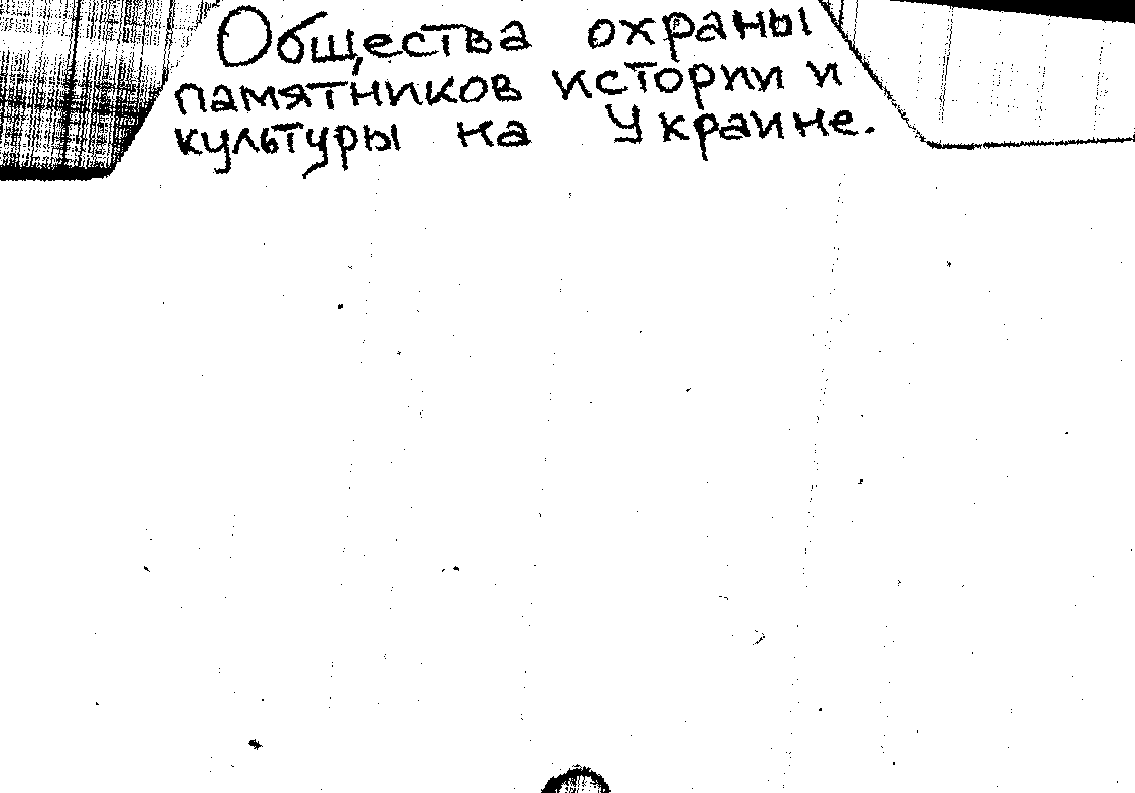 Общества охраны
памятников истории и
культуры на Украине.